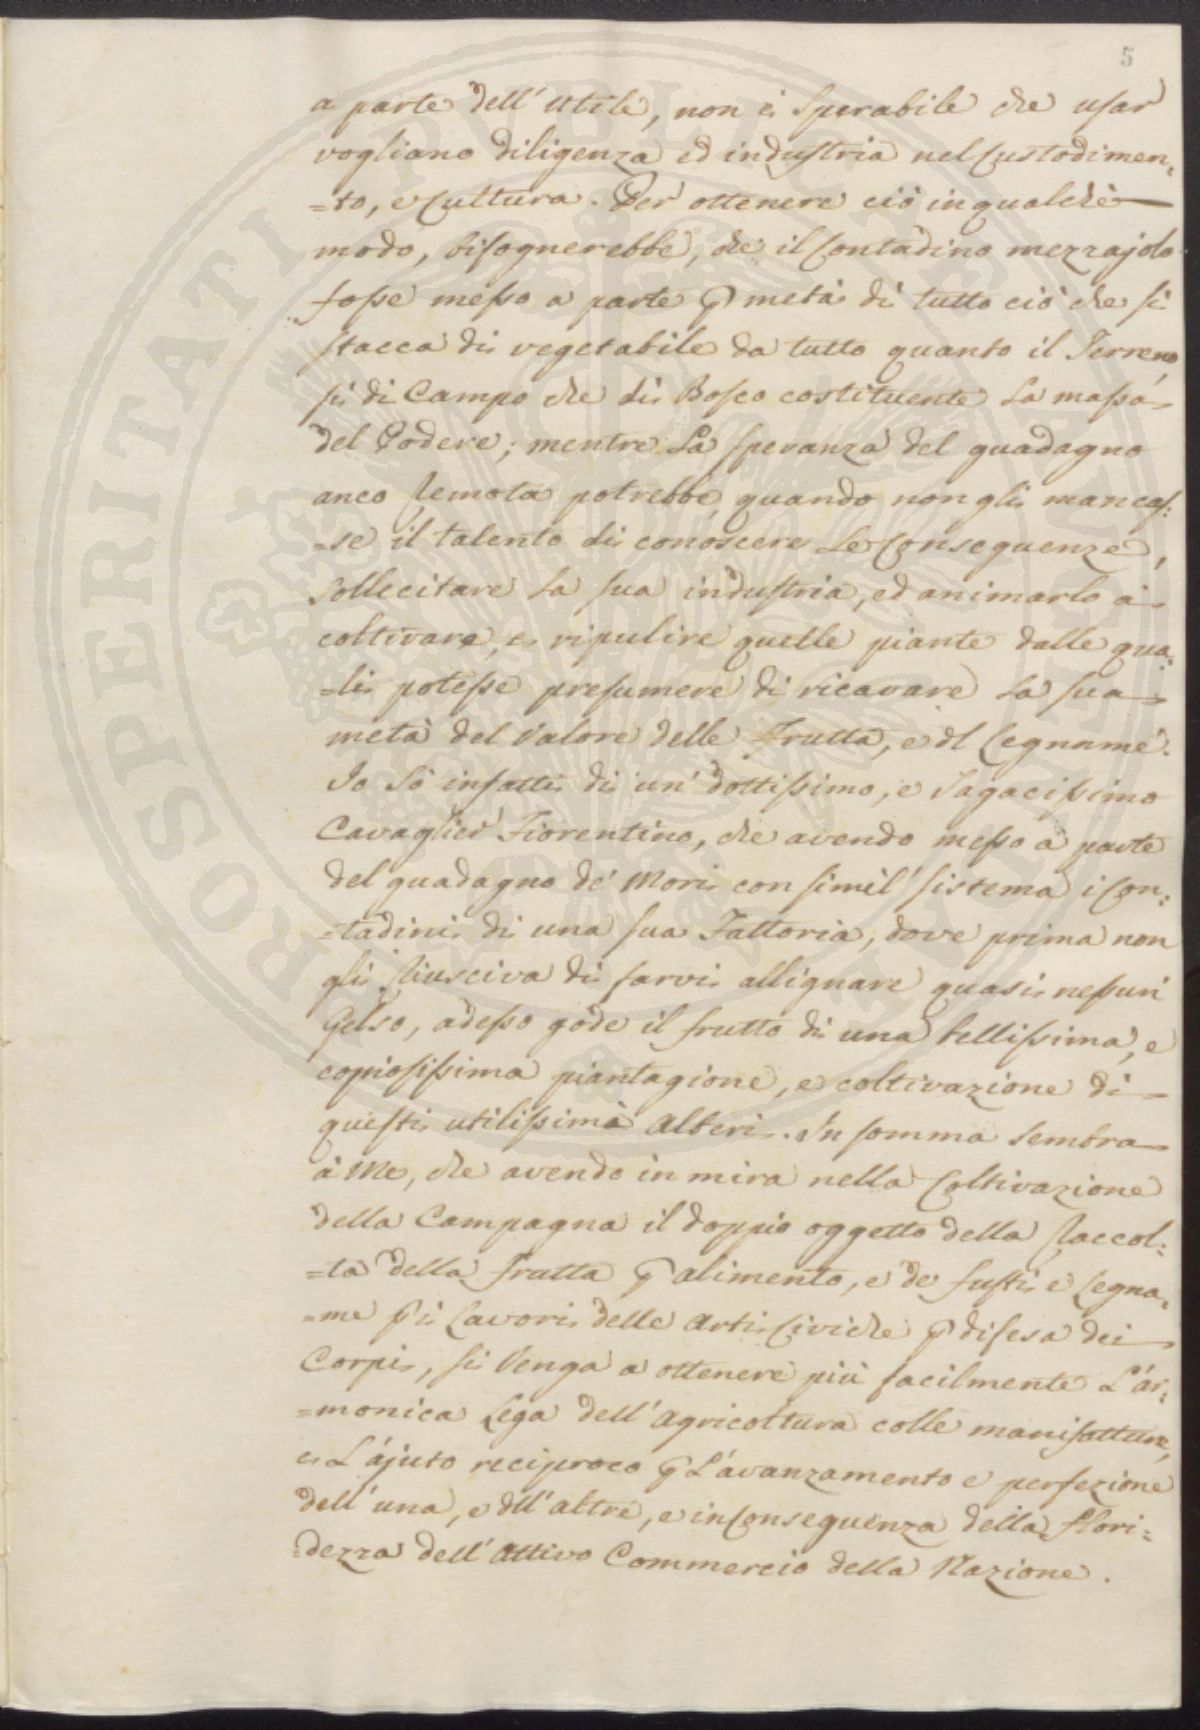 5
a parte dell' utile, non è sperabile che usar
vogliano diligenza ed industria nel Custodimen:
=to, e Cultura. Per ottenere ciò in qualche
modo, bisognerebbe, che il Contadino mezzajolo
fosse messo a parte ꝑ metà di tutto ciò che si
stacca di vegetabile da tutto quanto il Terreno
sì di Campo che di Bosco costituente la massa
del Podere; mentre la speranza del guadagno
anco remota potrebbe, quando non gli mancas:
=se il talento di conoscere le Conseguenze,
sollecitare la sua industria, ed animarlo a
coltivare, e ripulire quelle piante dalle qua:
=li potesse presumere di ricavare la sua
metà del Valore delle Frutta, e dl Legname.
Io sò infatti di un' dottissimo, e sagacissimo
Cavaglier Fiorentino, che avendo messo a parte
del guadagno de' Mori con simil' sistema i Con:
=tadini di una sua Fattoria, dove prima non
gli riusciva di farvi allignare quasi nessun
Gelso, adesso gode il frutto di una bellissima, e
copiosissima piantagione, e coltivazione di
questi utilissimi alberi. In somma sembra
à Me, che avendo in mira nella Coltivazione
della Campagna il doppio oggetto della Raccol:
=ta della Frutta ꝑ alimento, e de' fusti e Legna:
=me ꝑ i Lavori delle Arti Civiche ꝑ difesa dei
Corpi, si Venga a ottenere più facilmente L'ar:
=monica Lega dell' Agricoltura colle manifatture,
e L'ajuto reciproco ꝑ L'avanzamento e perfezione
dell' una, e dll' altre, e in Conseguenza della flori:
=dezza dell' Attivo Commercio della Nazione.
PROSPERITATI PUBLICAE AUGENDAE